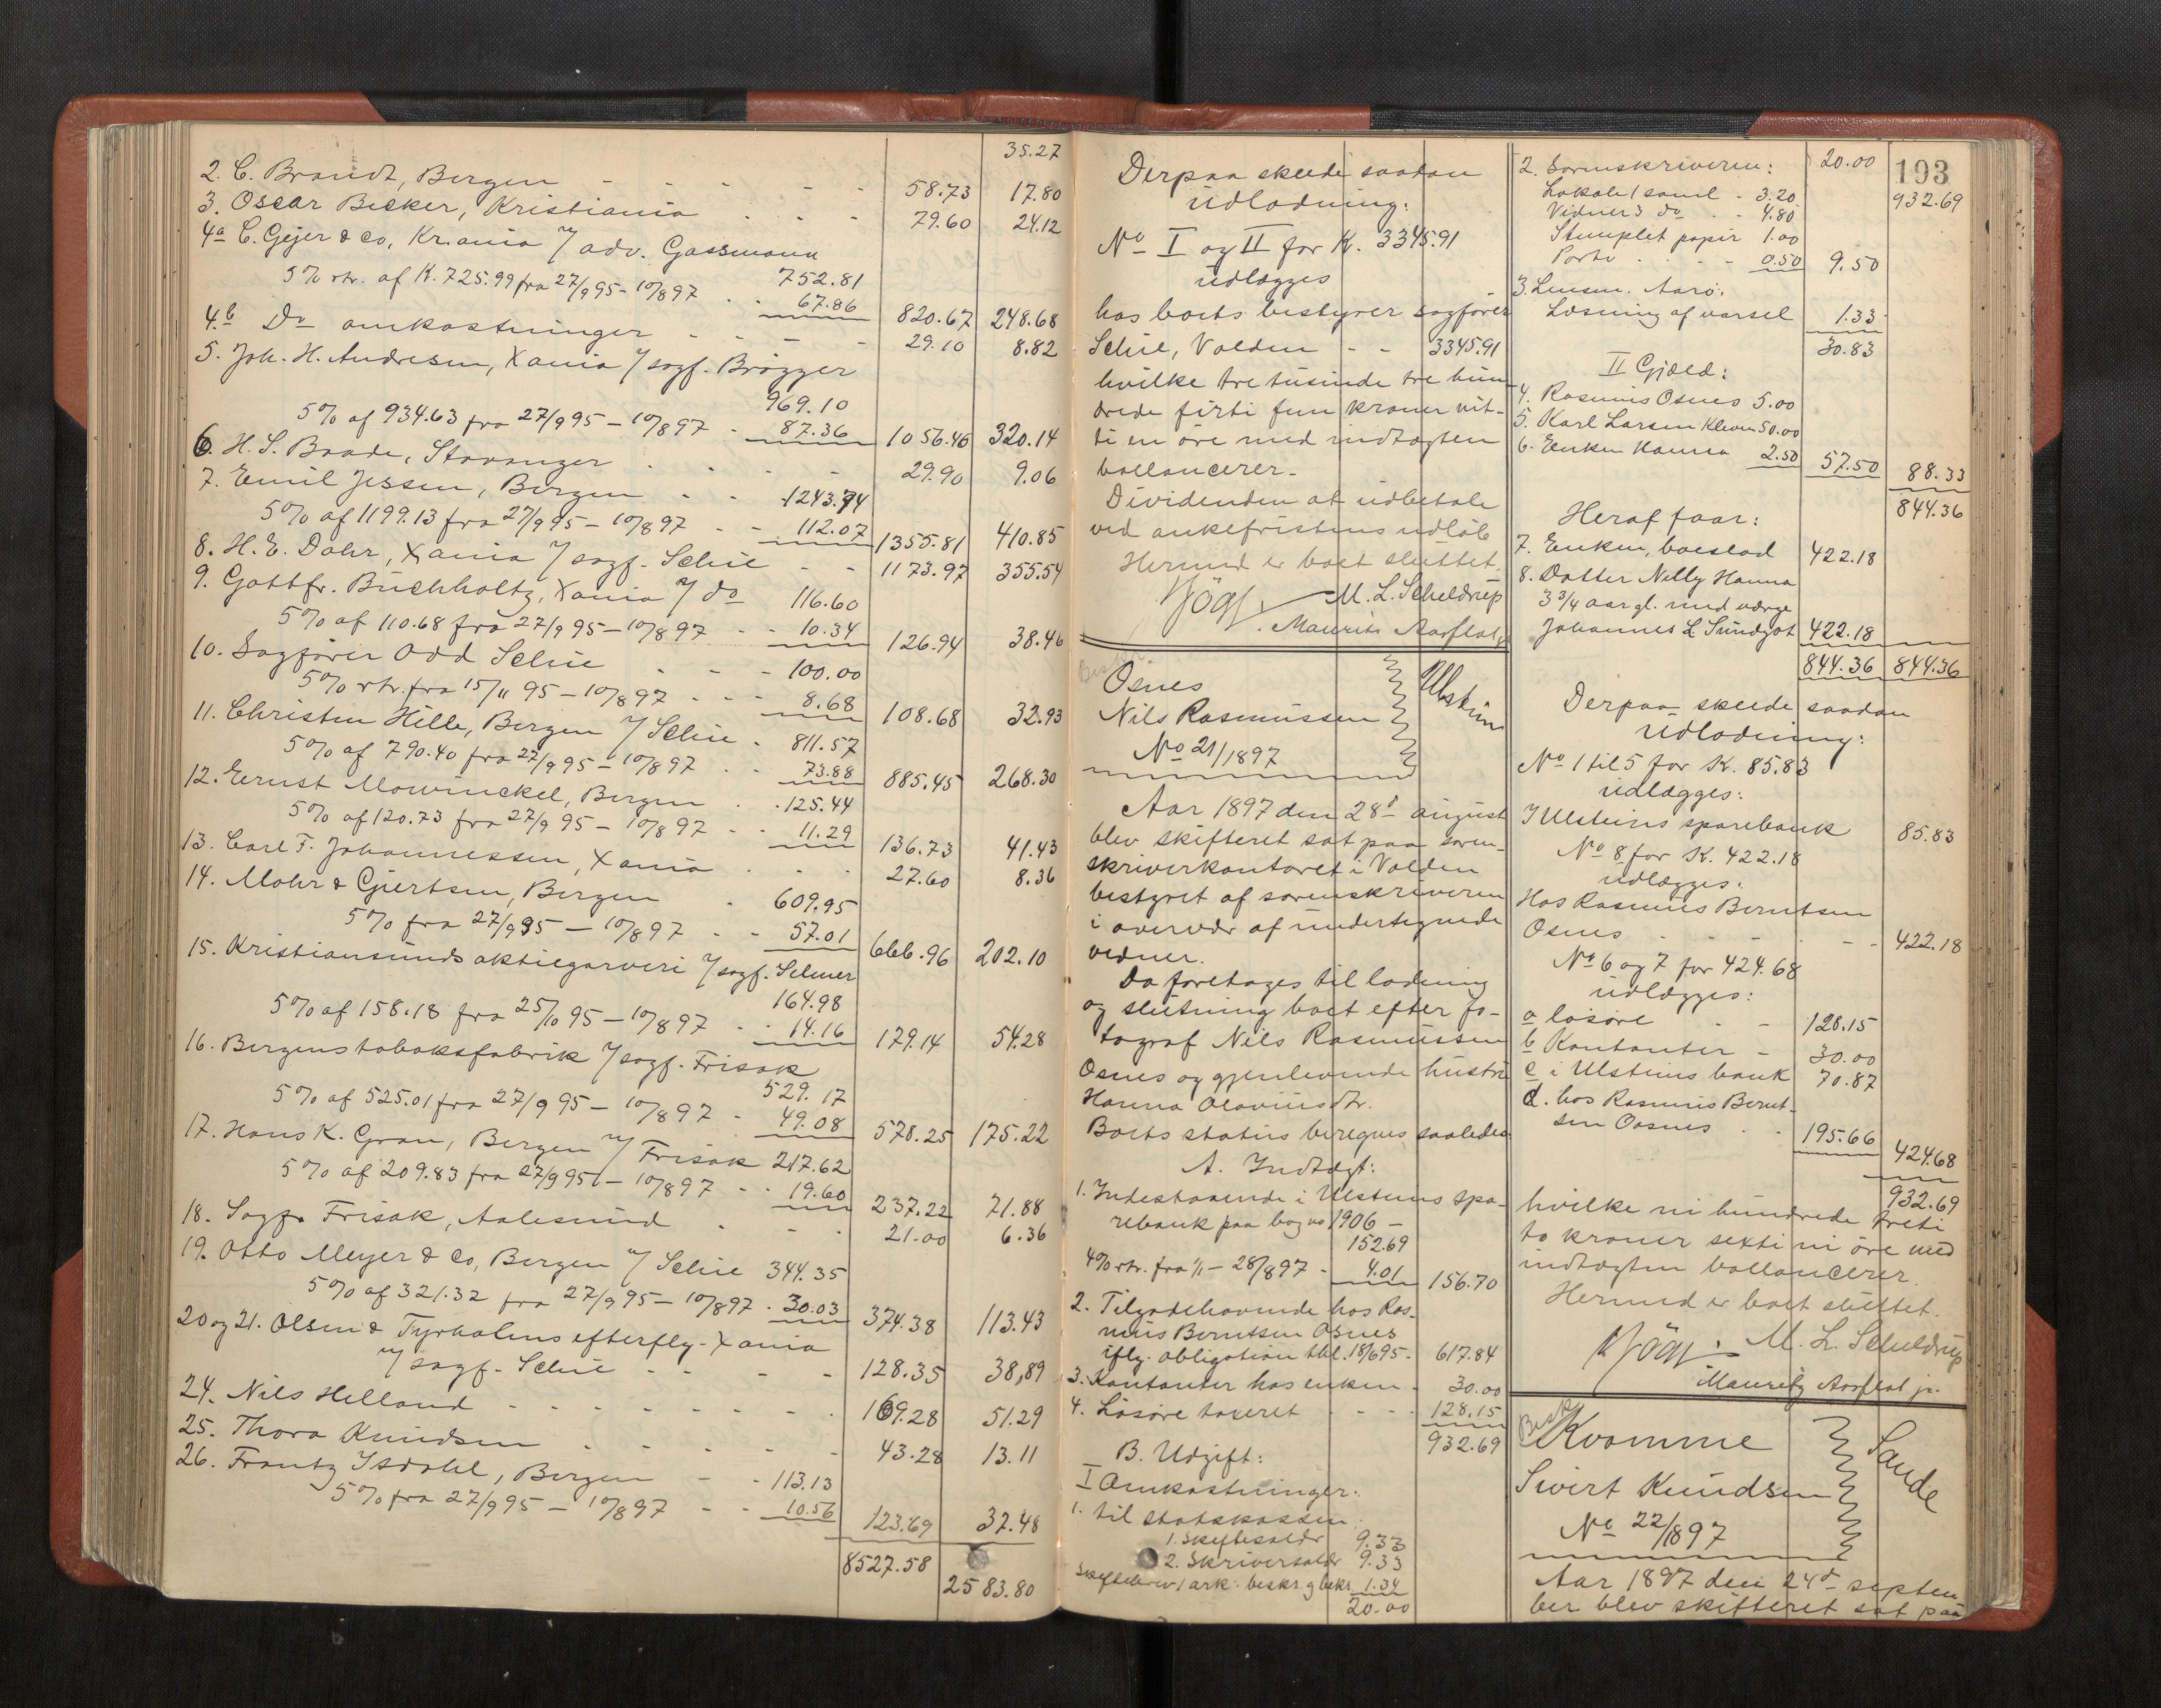 35.27
2. C. Brandt, Bergen - - - - - 58.73 17.80
3. Oscar Becker, Kristiania - - - 79.60 24.12
4a C. Gejer & Co, Kr.ania v/ adv. Gassmann
752.81
5% rtr. af K. 725.99 fra 27/9 95 - 10/8 97 - - 67.86 820.67 248.68
4b Do omkostninger - - - - 29.10 8.82
5. Joh. H. Andresen, Xania v/ sagf. Brøgger
969.10
5% af 934.63 fra 27/9 95 - 10/8 97 - 87.36 1056.46 320.14
6. H. S. Baade, Stavanger - - - - 29.90 9.06
7. Emil Jessen, Bergen - - 1243.74
5% af 1199.13 fra 27/9 95 - 10/8 97 - - 112.07 1355.81 410.85
8. H. E. Dahr, Xania v/ sagf. Schie - - 1173.97 355.54
9. Gottfr. Buchholtz, Xania v/ do 116.60
5% af 110.68 fra 27/9 95 - 10/8 97 - - 10.34 126.94 38.46
10. Sagfører Odd Schie - - - 100.00
5% rtr. fra 15/11 95 - 10/8 97 - - - 8.68 108.68 32.93
11. Christen Hille, Bergen v/ Schie - 811.57
5% af 790.40 fra 27/9 95 - 10/8 97 - - 73.88 885.45 268.30
12. Ernst Mowinckel, Bergen - - 125.44
5% af 120.73 fra 27/9 95 - 10/8 97 - - 11.29 136.73 41.43
13. Carl F. Johannessen, Xania - - - 27.60 8.36
14. Mohr & Gjertsen, Bergen - 609.95
5% fra 27/9 95 - 10/8 97 - - 57.01 666.96 202.10
15. Kristiansunds aktiegarveri v/ sagf. Selmer
164.98
5% af 158.18 fra 25/10 95 - 10/8 97 - - 14.16 179.14 54.28
16. Bergens tobaksfabrik v/ sagf. Frisak
529.17
5% af 525.01 fra 27/9 95 - 10/8 97 - 49.08 578.25 175.22
17. Hans K. Gran, Bergen v/ Frisak 217.62
5% af 209.83 fra 27/9 95 - 10/8 97 - - 19.60 237.22 71.88
18. Sagf. Frisak, Aalesund - - - 21.00 6.36
19. Otto Meyer & Co, Bergen v/ Schie 344.35
5% af 321.32 fra 27/9 95 - 10/8 97 - 30.03 374.38 113.43
20 og 21. Olsen & Tyrholms efterflg. Xania
v/ sagf. Schie - - - - 128.35 38,89
24. Nils Helland - - - - - - - 169.28 51.29
25. Thora Knudsen - - - - - 43.28 13.11
26. Frantz Isdahl, Bergen - - - 113.13
5% fra 27/9 95 - 10/8 97 - - 10.56 123.69 37.48
8527.58 2583.80
Derpaa skeede saadan
udlodning:
No I og II for K. 3345.91
udlægges
hos boets bestyrer sagfører
Schie, Volden - - 3345.91
hvilke tre tusinde tre hun-
drede firti fem kroner nit-
ti en øre med indtægten
ballancerer.
Dividenden at udbetale
ved ankefristens udløb
Hermed er boet sluttet.
M. L. Scheldrup
Mauritz Aarflot jr
Osnes
Nils Rasmussen
No 21/1897
Ulstein
Aar 1897 den 28d august
blev skifteret sat paa soren-
skriverkontoret i Volden
bestyret af sorenskriveren
i overvær af undertegnede
vidner.
Da foretoges til lodning
og slutning boet efter fo-
tograf Nils Rasmussen
Osnes og gjenlevende hustru
Hanna Olaviusdtr.
Boets status beregnes saaledes
A. Indtægt:
1. Indestaaende i Ulsteins spa-
rebank paa bog no 1906 -
152.69
4% rtr. fra 1/1 - 28/8 97 - 4.01 156.70
2. Tilgodehavende hos Ras-
mus Berntsen Osnes
iflg. obligation thl. 18/6 95 - 617.84
3. Kontanter hos enken - 30.00
4. Løsøre taxeret - - - 128.15
932.69
B. Udgift:
I Omkostninger.
1. til statskassen:
1. Skiftesalær 9.33
2. Skriversalær 9.33
Skiftebrev 1 ark. beskr. g bekr 1.34
20.00
193
2. Sorenskriveren: 20.00 932.69
Lokale 1 saml - 3.20
Vidner 3 do - - 4.80
Stemplet papir 1.00
Porto - - - - 0.50 9.50
3. Lensm. Aarø:
Læsning af varsel 1.33
30.83
II Gjæld:
4. Rasmus Osnes 5.00
5. Karl Larsen Kleven 50.00
6. Enken Hanna 2.50 57.50 88.33
844.36
Heraf faar:
7. Enken, boeslod 422.18
8. Datter Nelly Hanna
3 3/4 aar gl. med værge
Johannes L Sundgot 422.18
844.36 844.36
Derpaa skeede saadan
udlodning:
No 1 til 5 for K. 85.83
udlægges:
I Ulsteins sparebank 85.83
No 8 for K. 422.18
udlægges:
Hos Rasmus Berntsen
Osnes - - - - - 422.18
No 6 og 7 for 424.68
udlægges:
a løsøre - - 128.15
b Kontanter - 30.00
c i Ulsteins bank 70.87
d. hos Rasmus Bernt-
sen Oosnes - - 195.66 424.68
932.69
hvilke ni hundrede treti
to kroner sexti ni øre med
indtægten ballancerer.
Hermed er boet sluttet.
M. L. Scheldrup
Mauritz Aarflot jr.
Kvamme
Sivert Knudsen
No 22/1897
Sande
Aar 1897 den 24d septem
ber blev skifteret sat paa